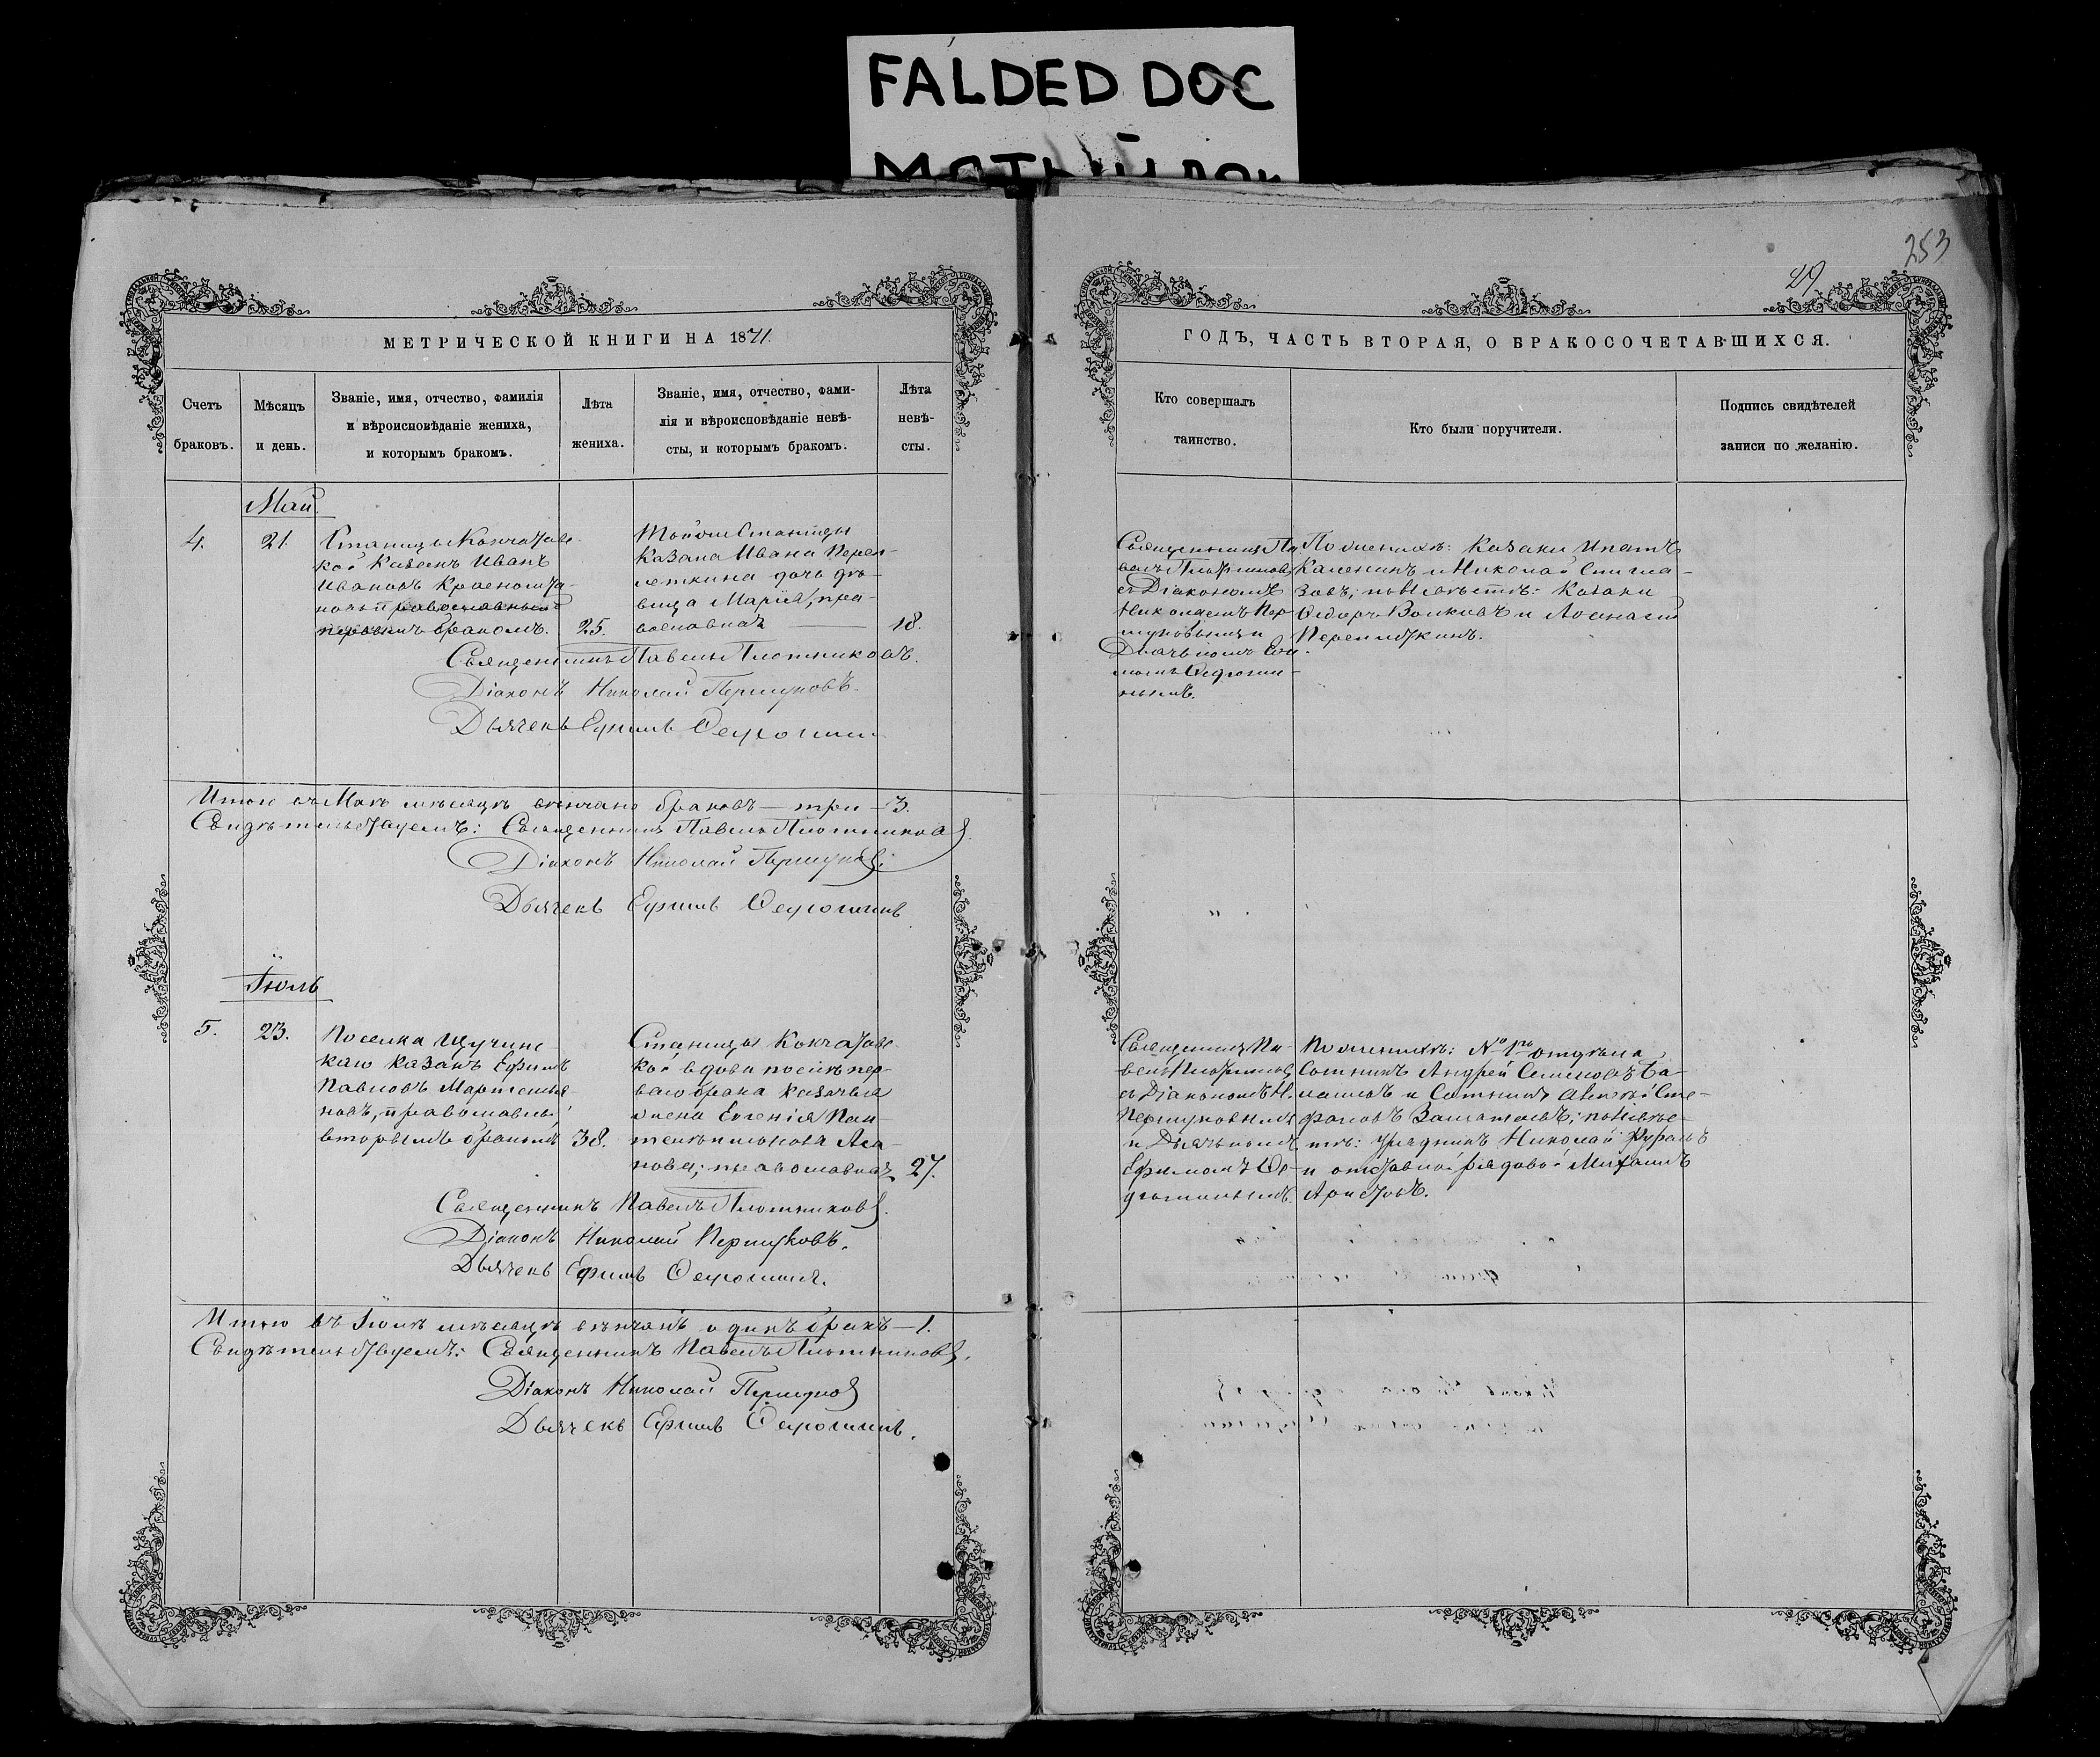 FALDED DOC
МЯТЫЙ ДОК
253
29.
МЕТРИЧЕСКОЙ КНИГИ НА 1871.
Счетъ браковъ.
Мѣсяцъ и день.
Званіе, имя, отчество, фамилія
и вѣроисповѣданіе жениха,
и которымъ бракомъ.
Лѣта жениха.
Званіе, имя, отчество, фами-
лія и вѣроисповѣданіе невѣ-
сты, и которымъ бракомъ.
Лѣта невѣ-
сты.
Май.
4.
21.
Станицы Кокчетавс-
кой казакъ Иванъ
Ивановъ
православный
первымъ бракомъ.
25.
Тойже Станицы
казака Ивана Переп-
леткина дочь дѣ-
вица Марія, пра-
вославная
18.
Священникъ Павелъ Плотниковъ.
Діаконъ Николай Першуковъ.
Дьячекъ Ефимъ
Итого въ Маѣ мѣсяцѣ вѣнчано браковъ — три — 3.
Свидѣтельствуемъ: Священникъ Павелъ Плотниковъ.
Діаконъ Николай Першуковъ.
Дьячекъ Ефимъ
Іюль
5.
23.
Поселка Щучинс-
каго казакъ Ефимъ
Павловъ Мартемья-
новъ, православный
вторымъ бракомъ
38.
Станицы Кокчетавс-
кой вдова послѣ пер-
ваго брака казачья
жена Евгенія Пан-
телеймонова Ага-
пова; православная
27.
Священникъ Павелъ Плотниковъ.
Діаконъ Николай Першуковъ.
Дьячекъ Ефимъ
Итого въ Іюлѣ мѣсяцѣ вѣнчанъ одинъ бракъ — 1.
Свидѣтельствуемъ: Священникъ Павелъ Плотниковъ.
Діаконъ Николай Першуковъ
Дьячекъ Ефимъ
ГОДЪ, ЧАСТЬ ВТОРАЯ, О БРАКОСОЧЕТАВШИХСЯ.
Кто совершалъ
таинство.
Кто были поручители.
Подпись свидѣтелей
записи по желанію.
Священникъ Па-
велъ Плотниковъ
съ Діакономъ
Николаемъ Пер-
шуковымъ и
Дьячкомъ Ефи-
момъ
По женихѣ: казаки Ипатъ
и Николай
по невѣстѣ: казаки
Ѳедоръ Волковъ и Аѳанасій
Переплеткинъ.
Священникъ Па-
велъ Плотниковъ
съ Діакономъ Н.
Першуковымъ
и Дьячкомъ
Ефимомъ
По женихѣ: № 1го отдѣла
Сотникъ Андрей Семеновъ Ба-
и Сотникъ Алексѣй Сте-
фановъ по невѣс-
тѣ: урядникъ Николай
и отставной рядовой Михаилъ